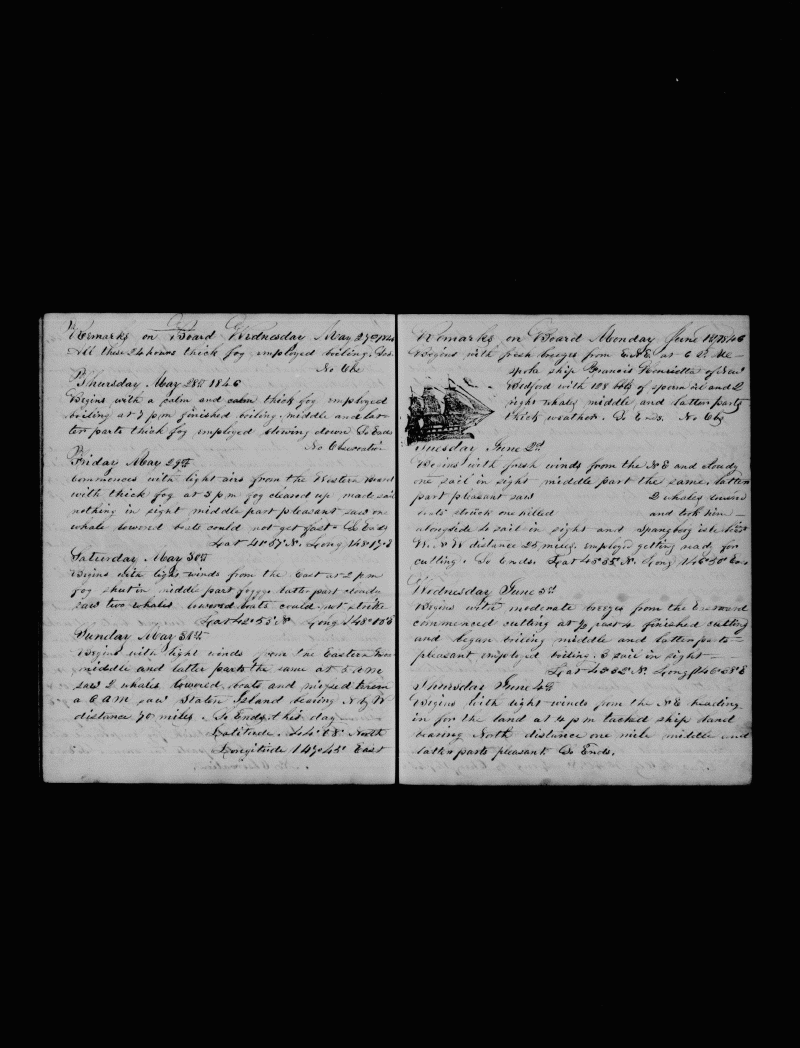 Remarks on Board Wednesday May 27th 1846
All these 24 hours thick fog employed boiling. Ends.
No Obs
Thursday May 28th 1846
Begins with a calm and calm thick fog employed
boiling at 7 pm finished boiling. middle and lat-
ter parts thick fog employed stowing down So Ends
No Observation
Friday May 29th
Commences with light airs from the Western board
with thick fog at 3 pm fog cleared up made sail
nothing in sight middle part pleasant saw one
whale lowered boats could not get fast So Ends
Lat 41°57 N. Long 148°17 E
Saturday May 30th
Begins with light winds from the East at 2 pm
fog shut in middle part foggy latter part cloudy
saw two whales lowered boats could not strike
Lat 42°55 N Long 148°
Sunday May 31st
Begins with light winds from the Eastern
middle and latter parts the same at 5 AM
saw 2 whales lowered boats and missed them
a 6 AM saw Staten Island bearing N by W
distance 70 miles. So Ends this day
Latitude. 44° 8' North
Longitude 147°45' East
Remarks on Board Monday June 1st 1846
Begins with fresh breezes from E.N.E. at 6 P. M.
spoke ship Francis Henrietta of New
Bedford with 128 bbls of sperm oil and 2
right whales middle and latter parts
thick weather. So Ends. No Obs
Tuesday June 2nd
Begins with fresh winds from the N E and cloudy
one sail in sight middle part the same. latter
part pleasant saw 2 whales lowered
boats struck one killed and took him
alongside 4 sail in sight and Spangberg isle
W. N W distance 25 miles. employed getting ready for
cutting. So Ends. Lat 43°35' N. Long 146°50' East
Wednesday June 3d
Begins with moderate breezes from the Eastward
commenced cutting at ½ past 4 finished cutting
and began boiling middle and latter parts
pleasant employed boiling. 3 sail in sight
Lat 43°32' N. Long 146°58' E
Thursday June 4th
Begins with light winds from the N E heading
in for the land at 4 pm tacked ship land
bearing North distance one mile middle and
latter parts pleasant So Ends.